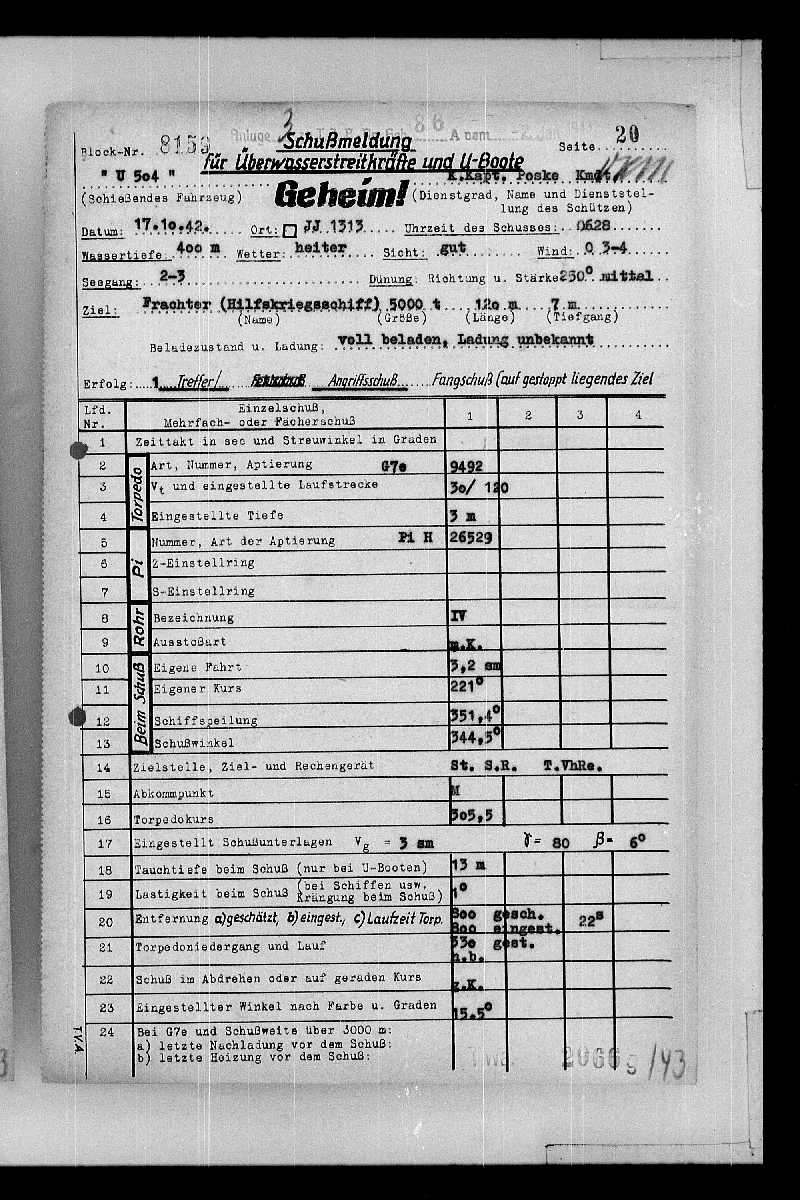 3
86
Anlage A vom
20
Block-Nr. 8153 Schußmeldung Seite
für Überwasserstreitkräfte und U-Boote
" U 504 " K.Kapt. Poske Kmdt.
(Schießendes Fahrzeug) Geheim! (Dienstgrad, Name und Dienststel-
lung des Schützen)
Datum: 17.10.42. Ort: JJ 1313 Uhrzeit des Schusses: 0628
Wassertiefe: 400 m Wetter: heiter Sicht: gut Wind: O 3-4
Seegang: 2-3 Dünung: Richtung u. Stärke 250° mittel
Ziel: Frachter (Hilfskriegsschiff) 5000 t 120 m 7 m
(Name) (Größe) (Länge) (Tiefgang)
Beladezustand u. Ladung: voll beladen, Ladung unbekannt
Erfolg: 1 Treffer/ Angriffsschuß Fangschuß (auf gestoppt liegendes Ziel
Lfd. Nr. Einzelschuß, Mehrfach- oder Fächerschuß 1 2 3 4
1 Zeittakt in sec und Streuwinkel in Graden
Torpedo
2 Art, Nummer, Aptierung G7e 9492
3 Vt und eingestellte Laufstrecke 30/ 120
4 Eingestellte Tiefe 3 m
Pi
5 Nummer, Art der Aptierung Pi H 26529
6 Z-Einstellring
7 S-Einstellring
Rohr
8 Bezeichnung IV
9 Ausstoßart m.K.
Beim Schuß
10 Eigene Fahrt 3,2 sm
11 Eigener Kurs 221°
12 Schiffspeilung 351,4°
13 Schußwinkel 344,5°
14 Zielstelle, Ziel- und Rechengerät St. S.R. T.VhRe.
15 Abkommpunkt M
16 Torpedokurs 305,5
17 Eingestellt Schußunterlagen Vg = 3 sm γ= 80 β= 6°
18 Tauchtiefe beim Schuß (nur bei U-Booten) 13 m
19 Lastigkeit beim Schuß (bei Schiffen usw. Krängung beim Schuß) 1°
20 Entfernung a)geschätzt, b)eingest., c)Laufzeit Torp. 800 gesch. 22s
800 eingest.
21 Torpedoniedergang und Lauf 330 gest.
h.b.
22 Schuß im Abdrehen oder auf geraden Kurs g.K.
23 Eingestellter Winkel nach Farbe u. Graden 15.5°
24 Bei G7e und Schußweite über 3000 m:
a) letzte Nachladung vor dem Schuß:
b) letzte Heizung vor dem Schuß:
TVA
2066 g /43